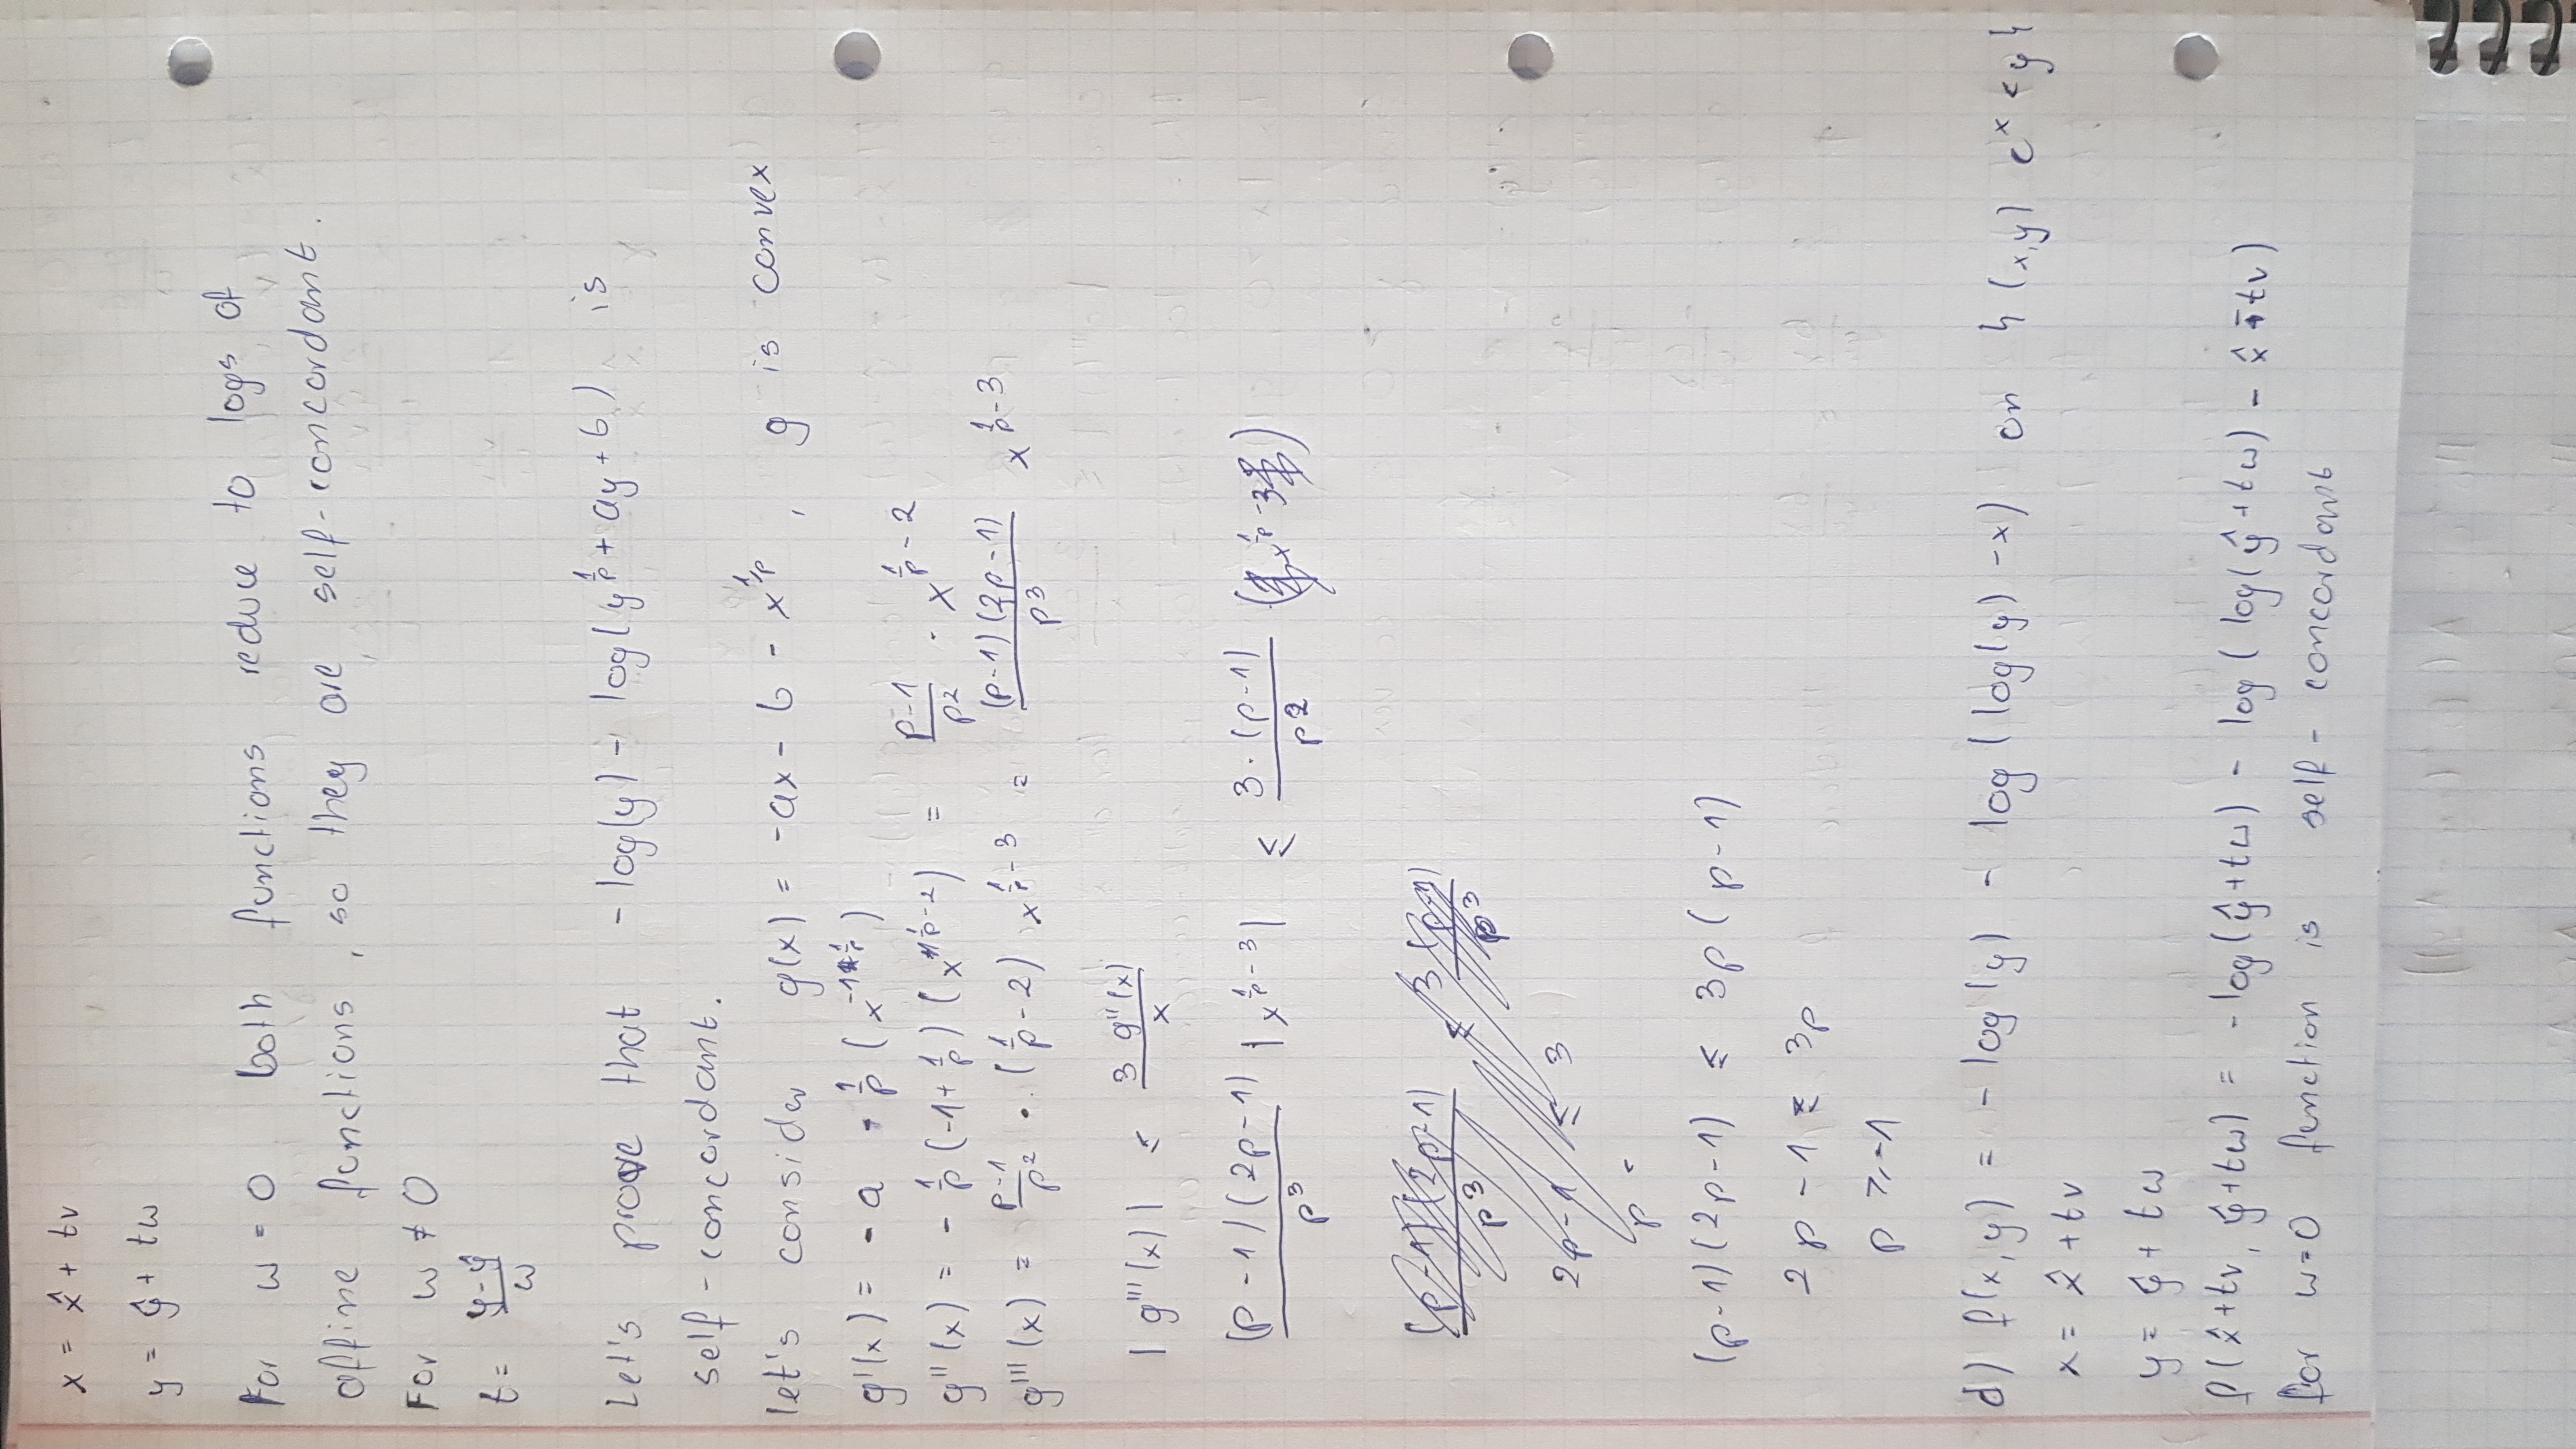 x = x̂ + tv
y = ŷ + tw
For w = 0 both functions reduce to logs of
affine functions, so they are self-concordant.
For w ≠ 0
t = (y-ŷ)/w
Let's prove that -log(y) - log(y^(1/p) + ay + b) is
self-concordant.
let's consider g(x) = -ax - b - x^(1/p), g is convex
g'(x) = - a - 1/p (x^(-1+1/p))
g''(x) = - 1/p (-1 + 1/p) (x^(1/p - 2)) = (p-1)/p² · x^(1/p - 2)
g'''(x) = (p-1)/p² · (1/p - 2) x^(1/p - 3) = (p-1)(2p-1)/p³ x^(1/p - 3)
|g'''(x)| ≤ 3 g''(x)/x
(p-1)(2p-1)/p³ |x^(1/p - 3)| ≤ 3·(p-1)/p² (x^(1/p - 3))
(p-1)(2p-1)/p³ ≤ 3(p-1)/p³
2p-1 ≤ 3
p <
(p-1)(2p-1) ≤ 3p(p-1)
2p - 1 ≤ 3p
p ≥ -1
d) f(x,y) = -log(y) - log(log(y) - x) on {(x,y) e^x < y}
x = x̂ + tv
y = ŷ + tw
f(x̂+tv, ŷ+tw) = -log(ŷ+tw) - log(log(ŷ+tw) - x̂ - tv)
for w=0 function is self-concordant